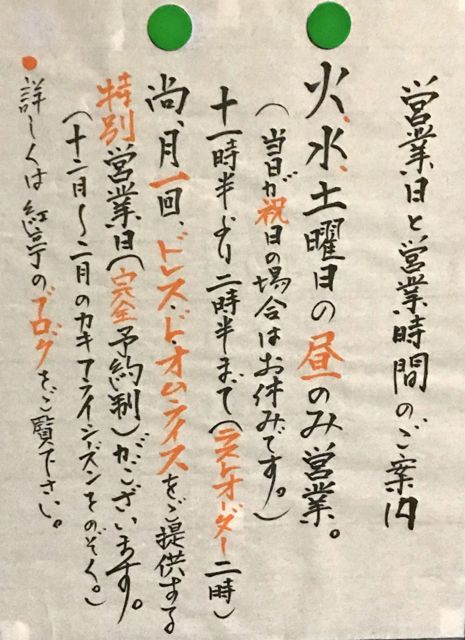 営業日と営業時間のご案内
火、水、土曜日の昼のみ営業。
（当日が祝日の場合はお休みです。）
十一時半より二時半まで（ラストオーダー二時）
尚、月一回、ドレス・ド・オムライスをご提供する
特別営業日（完全予約制）がございます。
（十二月〜二月のカキフライシーズンをのぞく。）
●詳しくは紅亭のブログをご覧下さい。